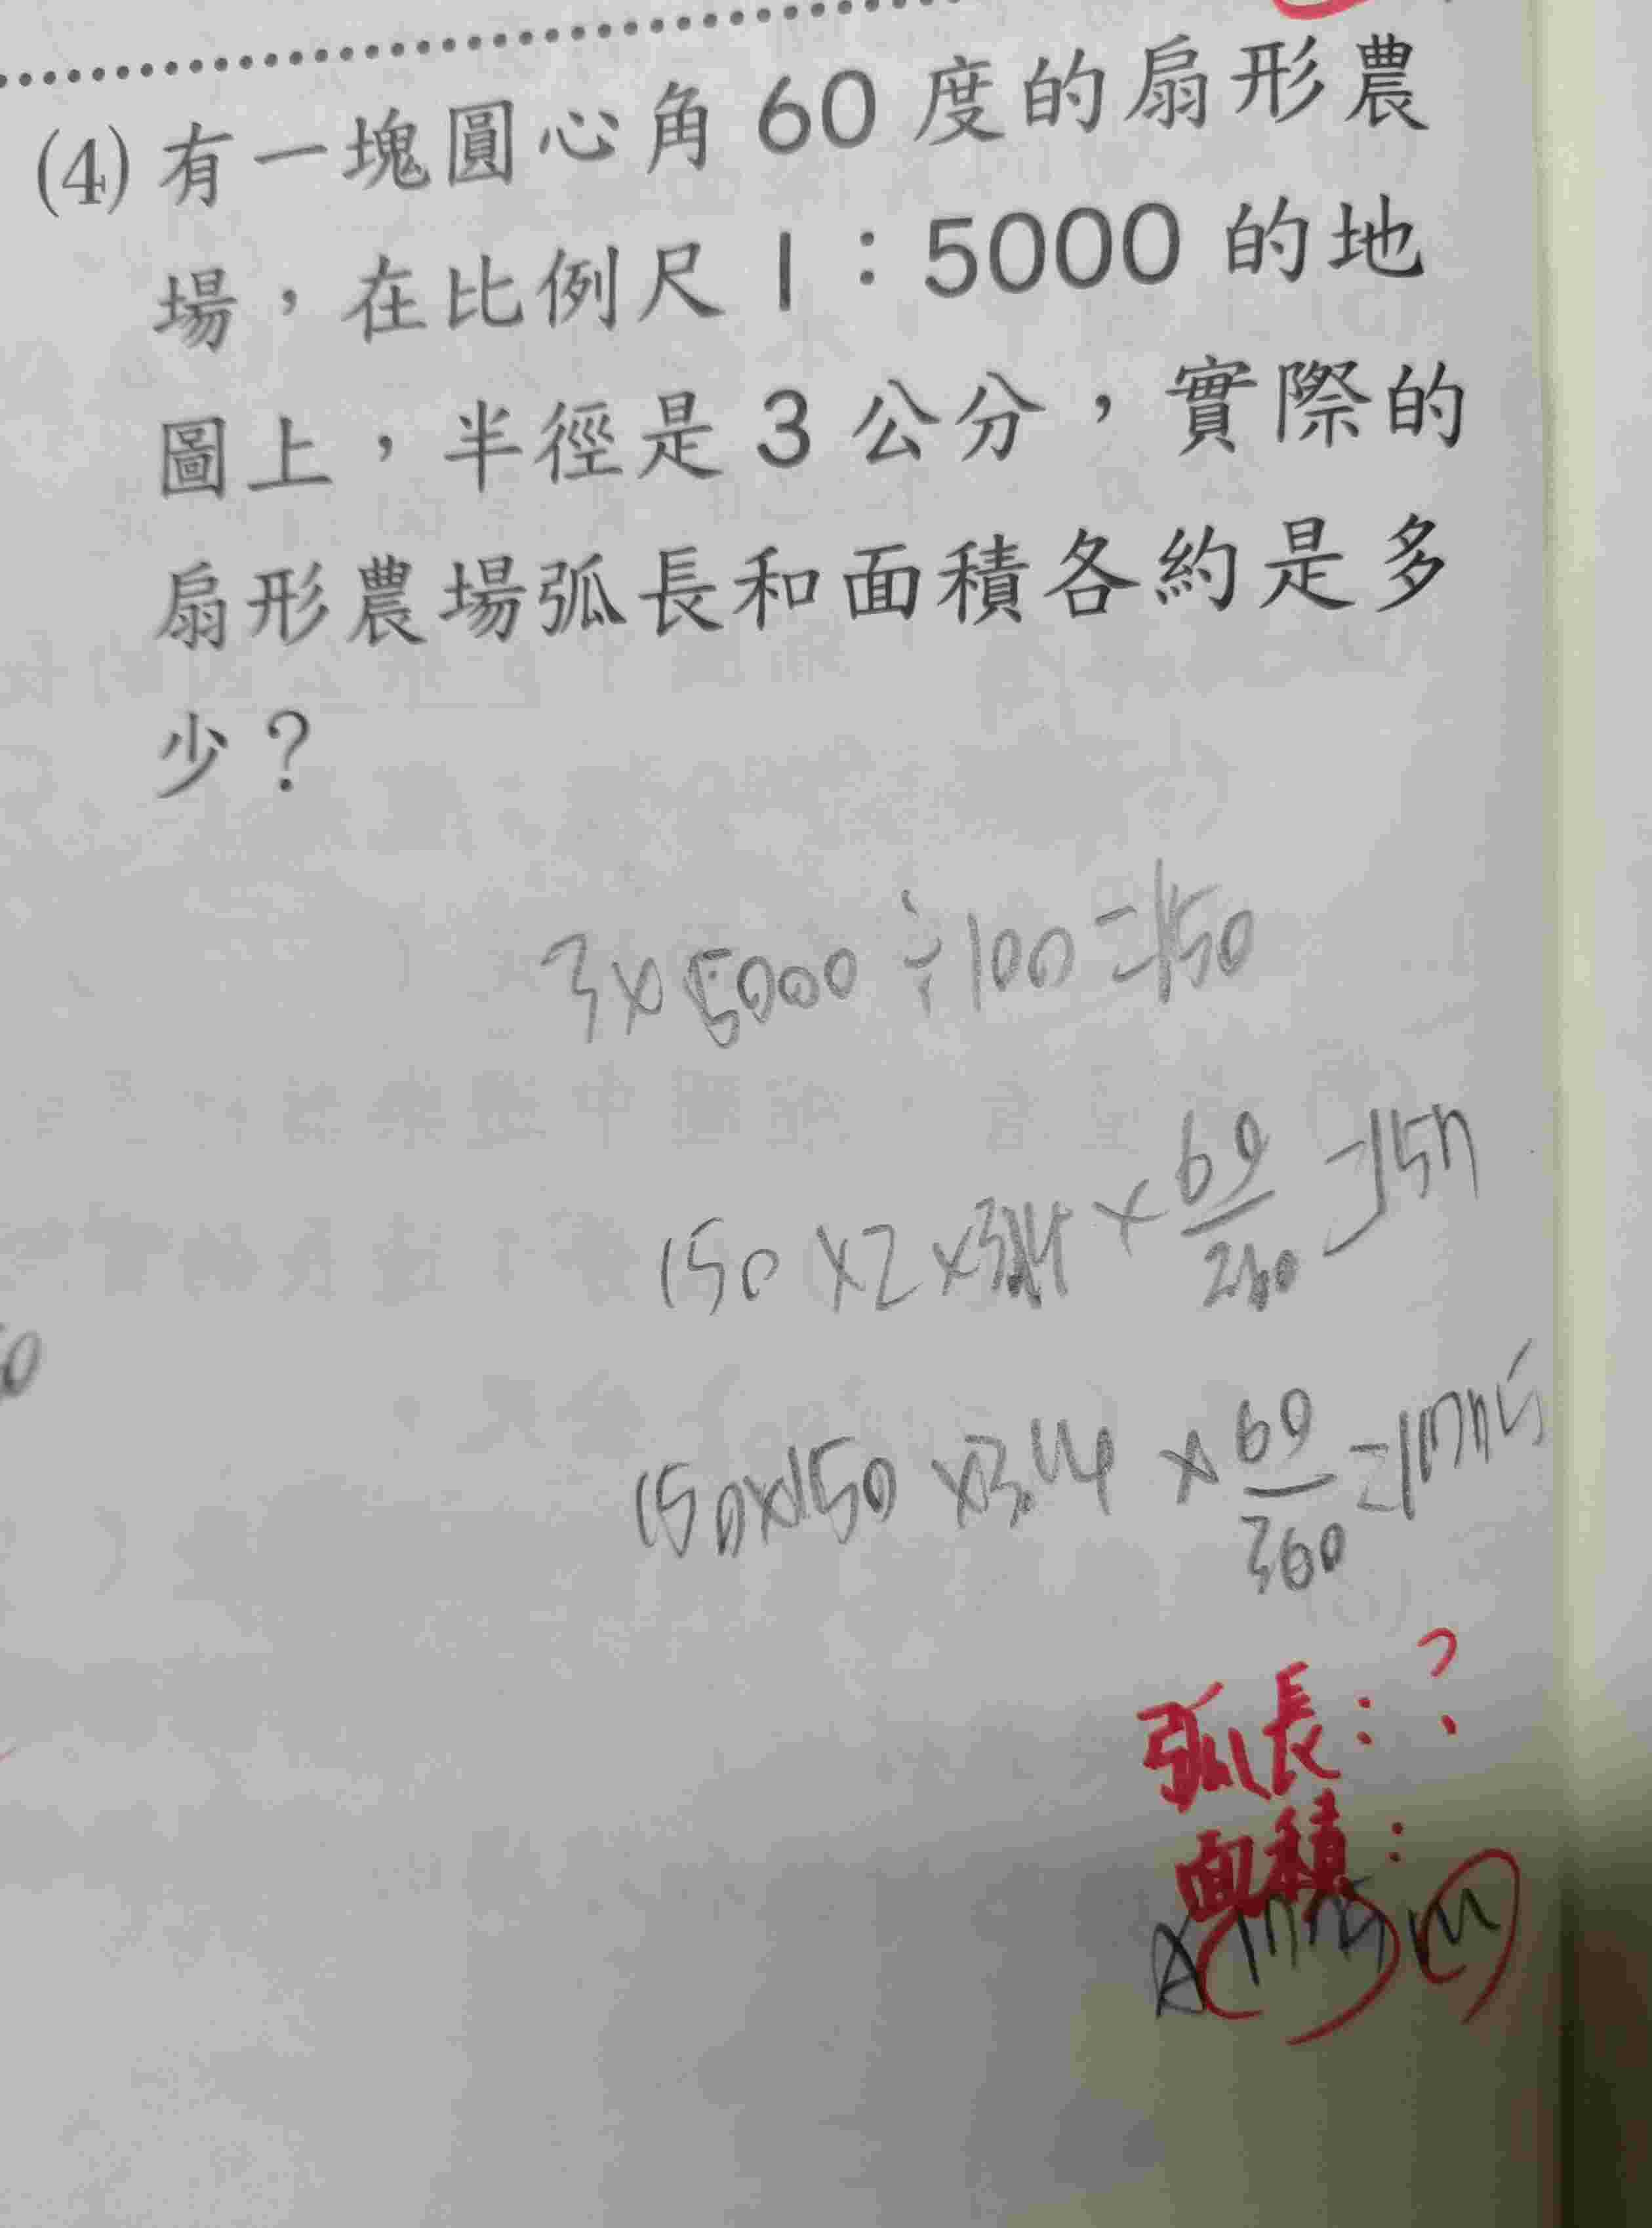 (4) 有一塊圓心角 60 度的扇形農
場，在比例尺 1：5000 的地
圖上，半徑是 3 公分，實際的
扇形農場弧長和面積各約是多
少？
3×5000÷100=150
150×2×3.14×60/360=157
150×150×3.14×60/360=11775
弧長：？
面積：
A 11775 m